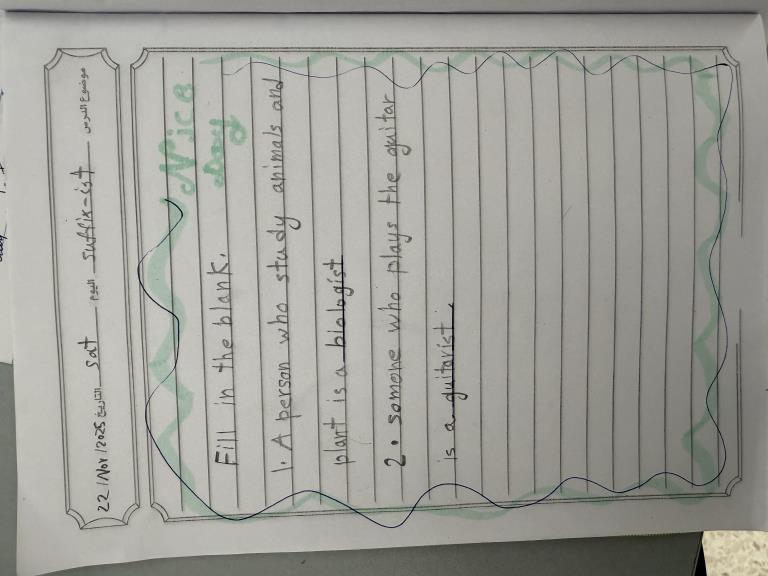 22/Nov/2025 التاريخ sat اليوم suffix-ist موضوع الدرس
Nice
Day
Fill in the blank.
1. A person who study animals and
plant is a biologist
2. someone who plays the guitar
is a guitarist.